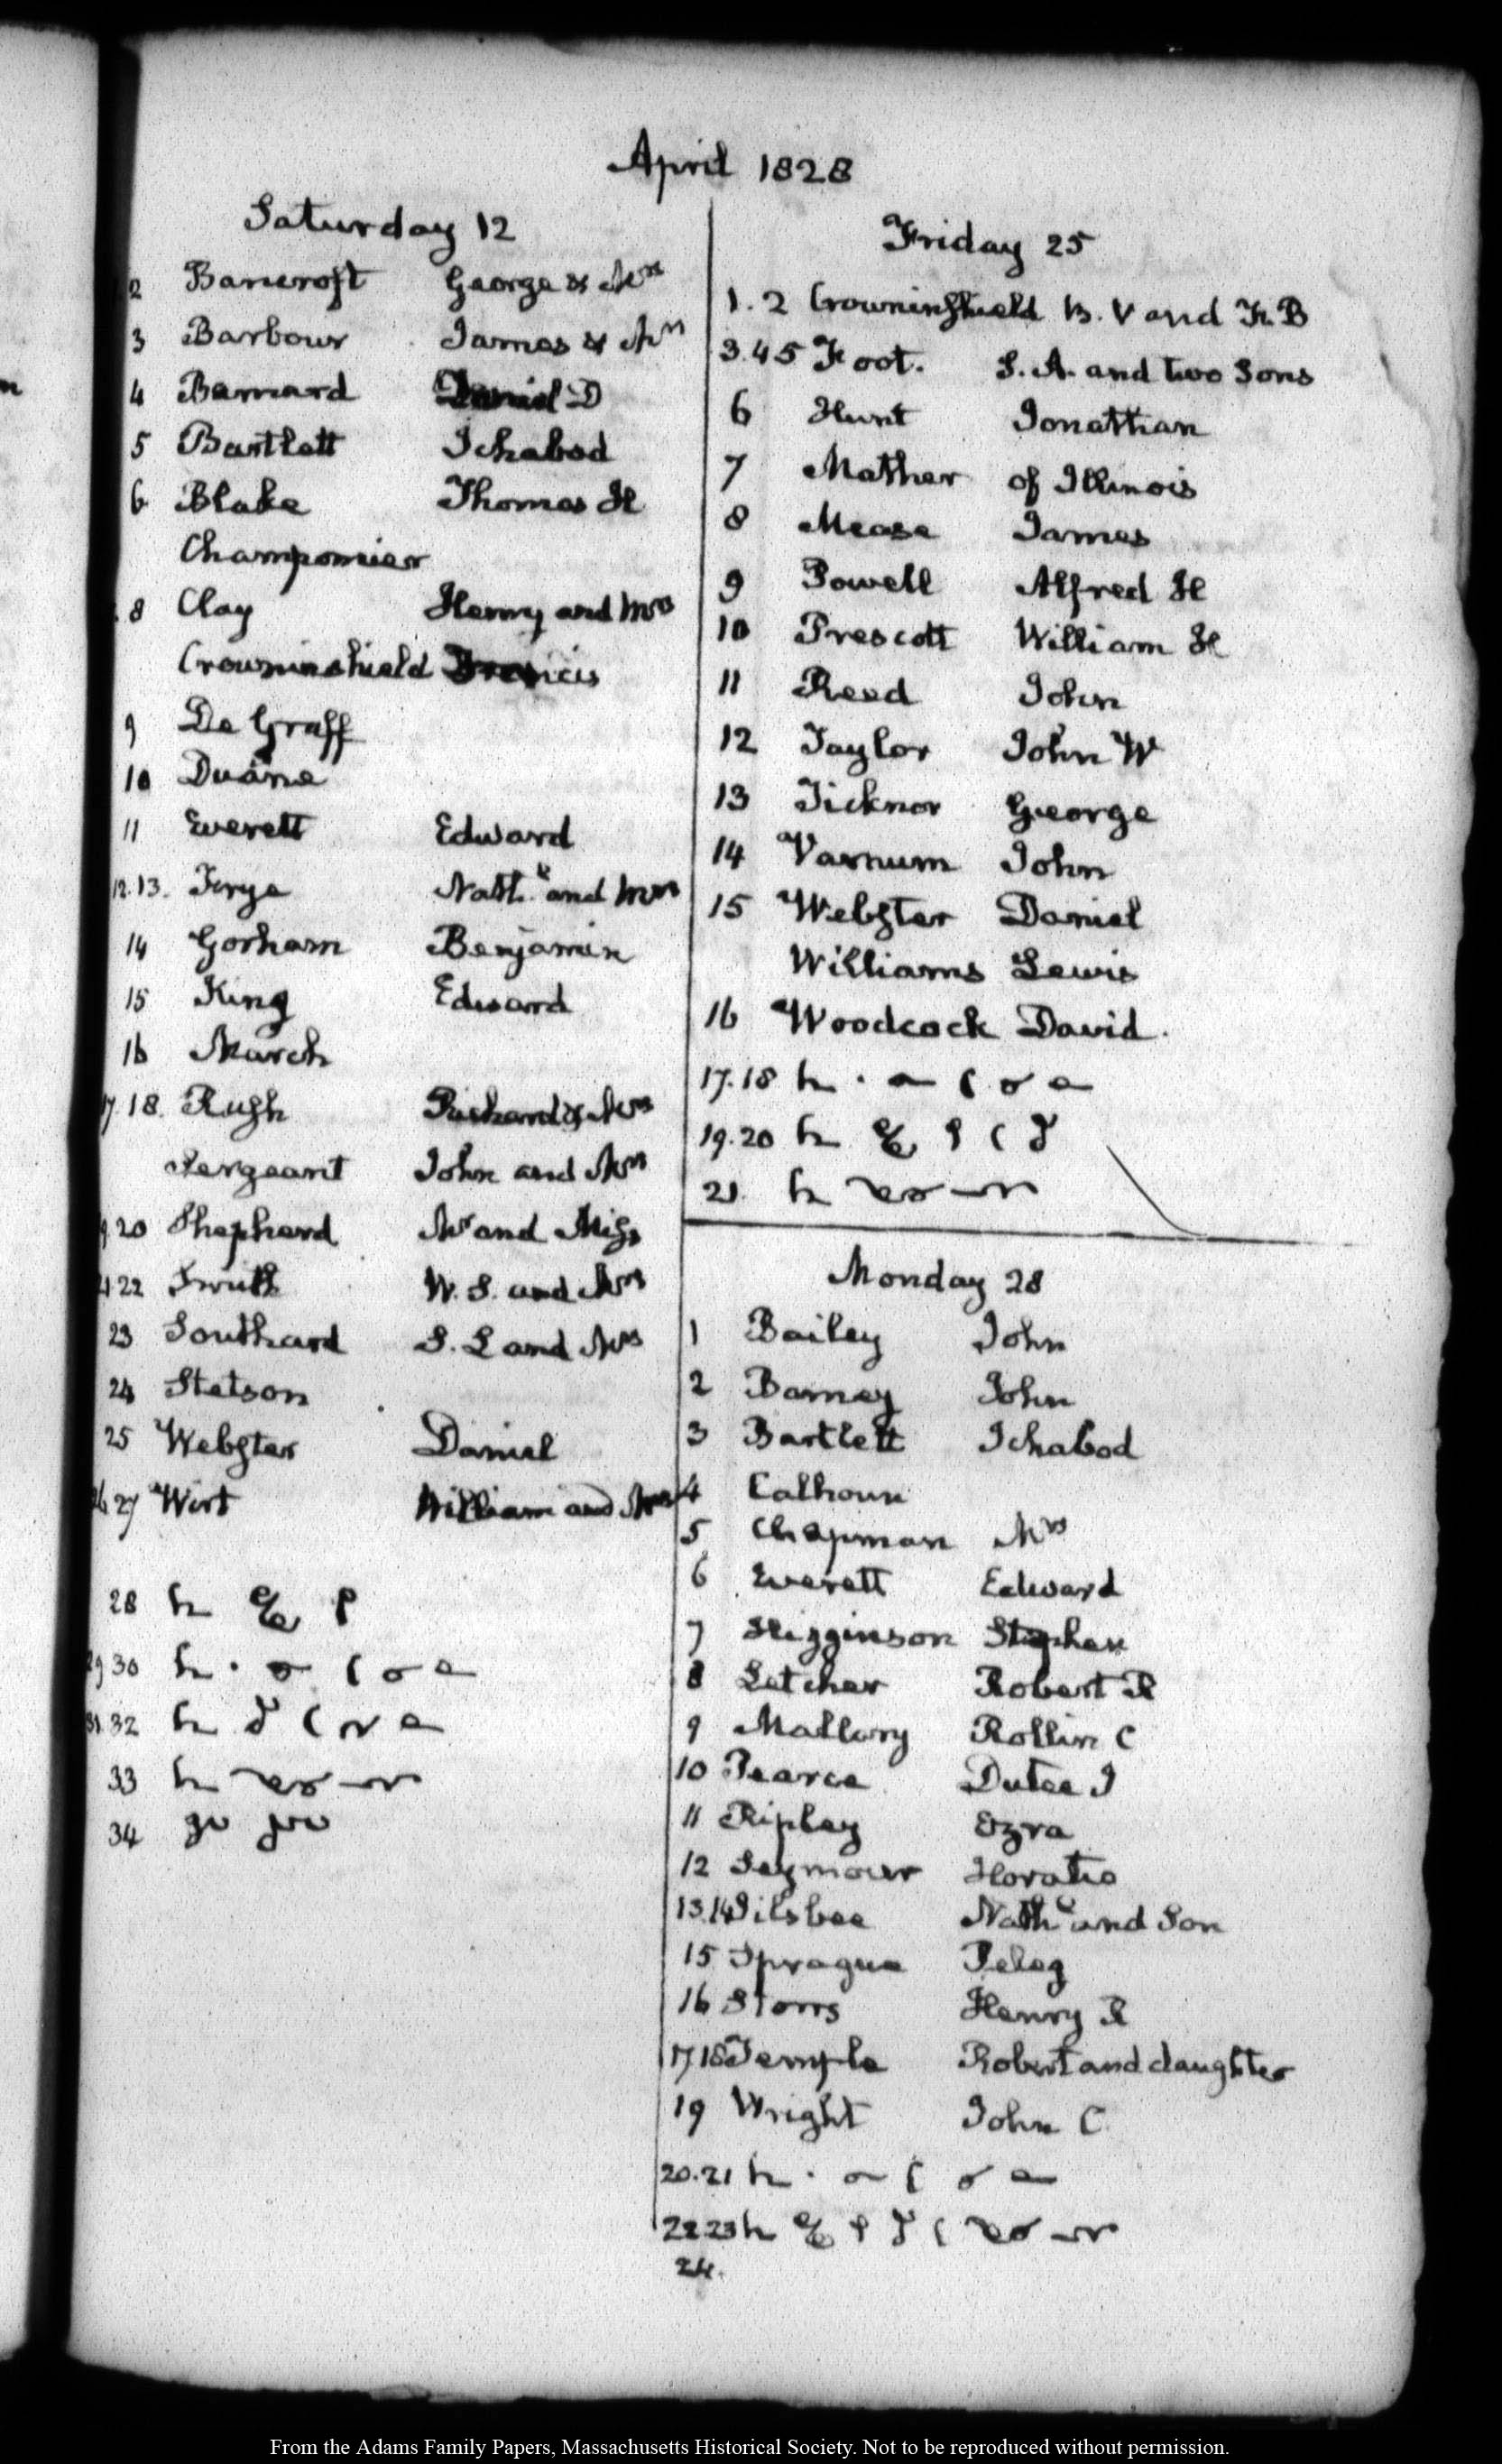 April 1828
Saturday 12
2 Bancroft George & Mrs
3 Barbour James & Mrs
4 Barnard Daniel D
5 Bartlett Ichabod
6 Blake Thomas H
Champomier
8 Clay Henry and Mrs
Crowninshield Francis
9 De Graff
10 Duane
11 Everett Edward
12.13. Frye Nathl. and Mrs
14 Gorham Benjamin
15 King Edward
16 March
17.18. Rush Richard & Mrs
Sergeant John and Mrs
20 Shephard Mr and Miss
22 Smith W. S. and Mrs
23 Southard S. L and Mrs
24 Stetson
25 Webster Daniel
26 27 Wirt William and Mrs
28
29 30
31.32
33
34
Friday 25
1. 2 Crowninshield B. V and F. B
3.4 5 Foot. S. A. and two Sons
6 Hunt Jonathan
7 Mather of Illinois
8 Mease James
9 Powell Alfred H
10 Prescott William H
11 Reed John
12 Taylor John W
13 Ticknor George
14 Varnum John
15 Webster Daniel
Williams Lewis
16 Woodcock David.
17.18
19.20
21.
Monday 28
1 Bailey John
2 Barney John
3 Bartlett Ichabod
4 Calhoun
5 Chapman Mrs
6 Everett Edward
7 Higginson Stephen
8 Letcher Robert P
9 Mallary Rollin C
10 Pearce Dutee J
11 Ripley Ezra
12 Seymour Horatio
13.14 Silsbee Nathl and Son
15 Sprague Peleg
16 Storrs Henry R
17 18 Temple Robert and daughter
19 Wright John C
20.21
22 23
24.
From the Adams Family Papers, Massachusetts Historical Society. Not to be reproduced without permission.